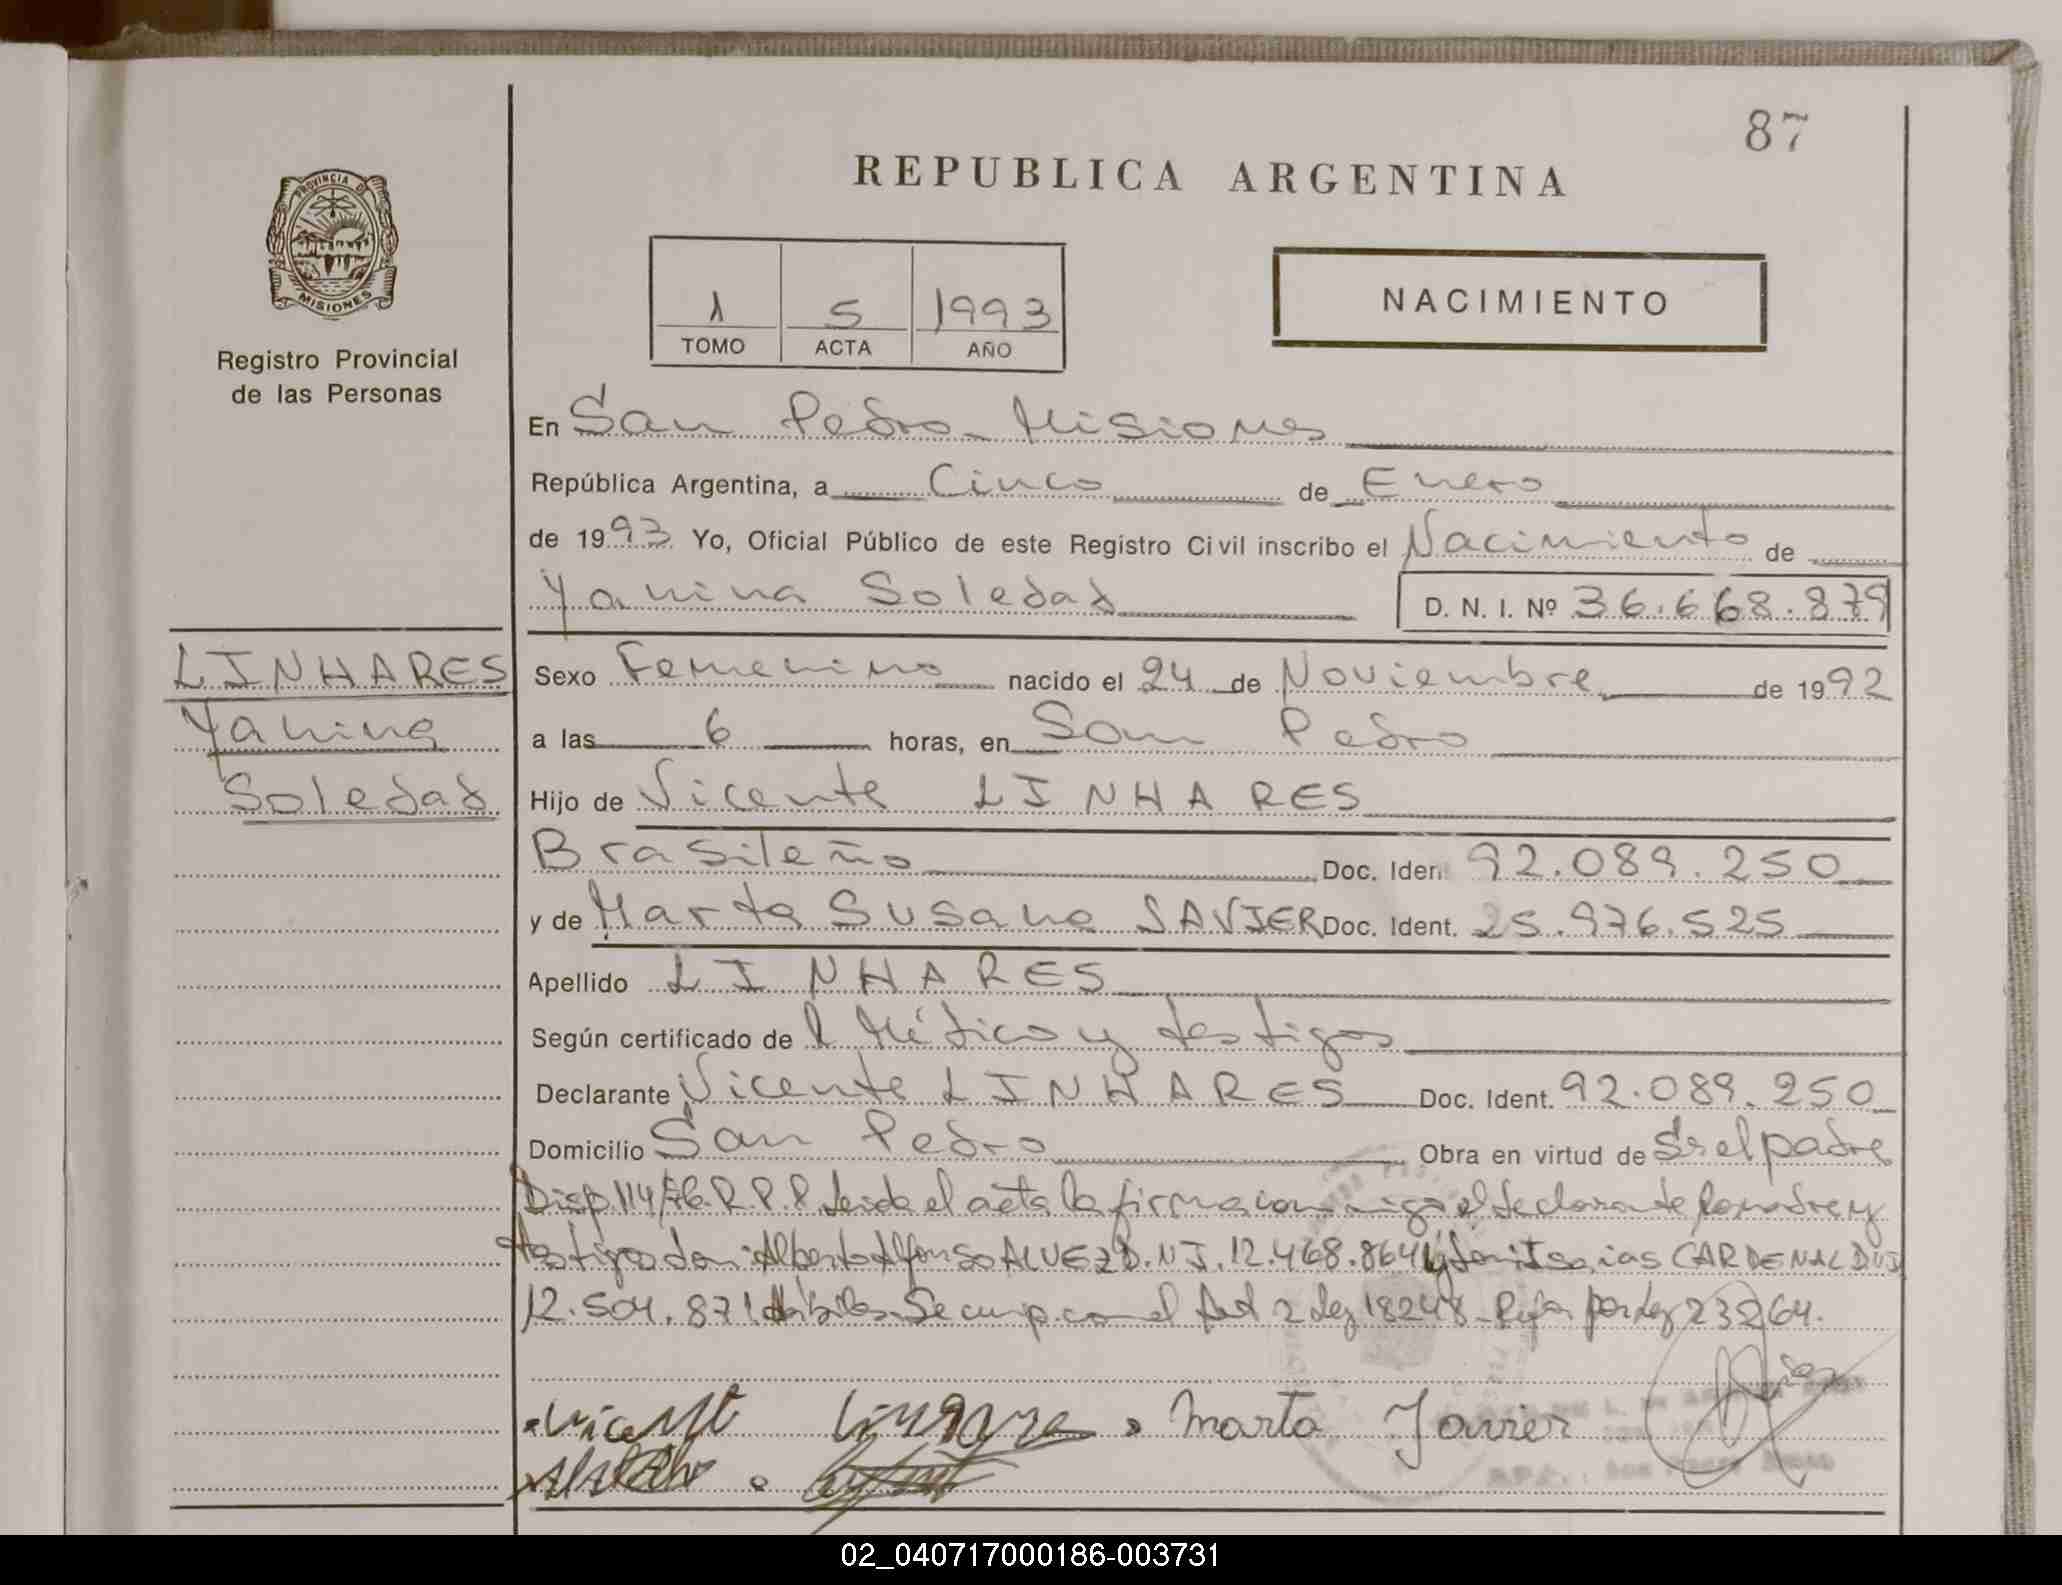 87
REPUBLICA ARGENTINA
PROVINCIA D
MISIONES
Registro Provincial
de las Personas
1 5 1993
TOMO ACTA AÑO
NACIMIENTO
En San Pedro - Misiones
República Argentina, a Cinco de Enero
de 1993 Yo, Oficial Público de este Registro Civil inscribo el Nacimiento de
Yanina Soledad D. N. I. Nº 36.668.879
LINHARES
Yanina
Soledad
Sexo Femenino nacido el 24 de Noviembre de 1992
a las 6 horas, en San Pedro
Hijo de Vicente LINHARES
Brasileño Doc. Iden 92.089.250
y de Marta Susana Doc. Ident. 25.976.525
Apellido LINHARES
Según certificado de l Médico y testigos
Declarante Vicente LINHARES Doc. Ident. 92.089.250
Domicilio San Pedro Obra en virtud de Sr el padre
Disp. 114/76. R.P.P. Leida el acta la firma conmigo el declarante la madre y
testigos don: Alberto Alfonso ALVEZ D.N.I. 12.468.864 y don Isaias CARDENAL DNI
12.504.871 hábiles. Se cump. con el Art 2 Ley 18248. por Ley 23264.
Vicente
Marta Javier